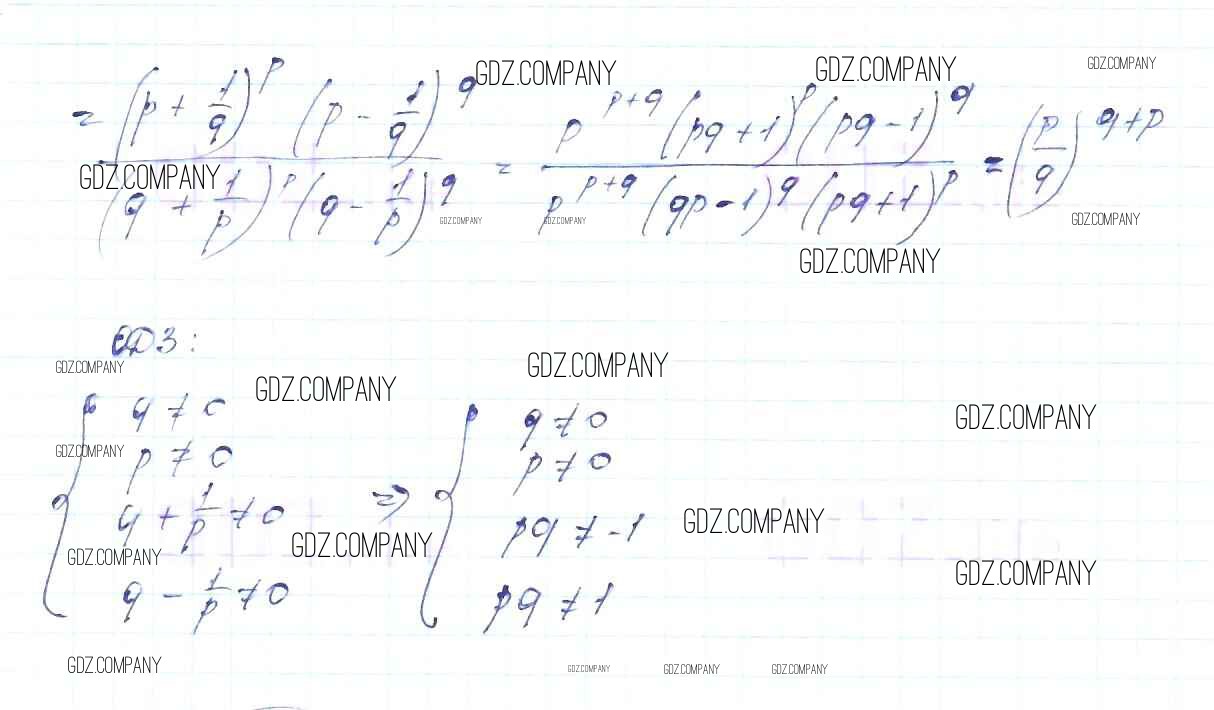 = (p + 1/q)^p (p - 1/q)^q / (q + 1/p)^p (q - 1/p)^q = p^(p+q) (pq+1)^p (pq-1)^q / p^(p+q) (qp-1)^q (pq+1)^p = (p/q)^(q+p)
GDZ.COMPANY GDZ.COMPANY GDZ.COMPANY
GDZ.COMPANY GDZ.COMPANY GDZ.COMPANY GDZ.COMPANY
GDZ.COMPANY
ОДЗ:
GDZ.COMPANY GDZ.COMPANY
GDZ.COMPANY GDZ.COMPANY
q ≠ 0 q ≠ 0
GDZ.COMPANY
p ≠ 0 p ≠ 0
q + 1/p ≠ 0 => pq ≠ -1
GDZ.COMPANY
GDZ.COMPANY GDZ.COMPANY
GDZ.COMPANY
q - 1/p ≠ 0 pq ≠ 1
GDZ.COMPANY GDZ.COMPANY GDZ.COMPANY GDZ.COMPANY